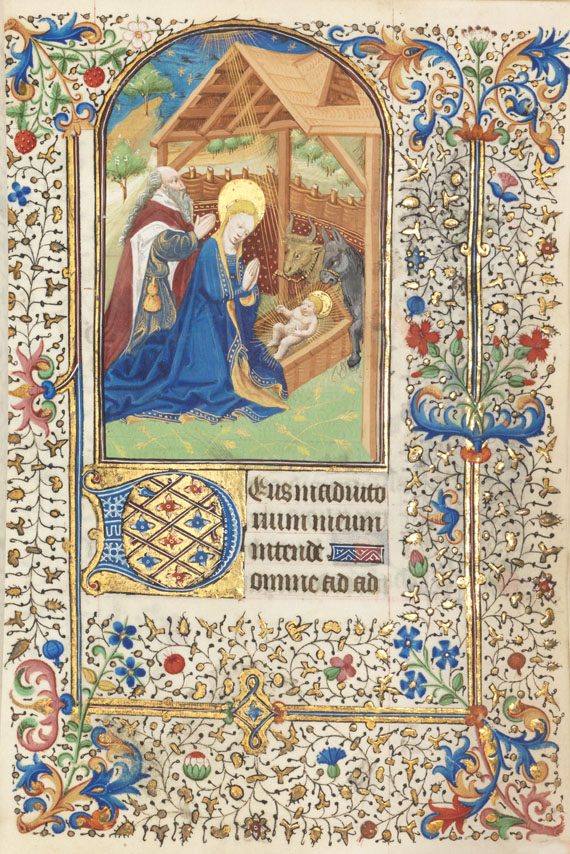 Deus in adiuto
rium meum
intende
omine ad ad